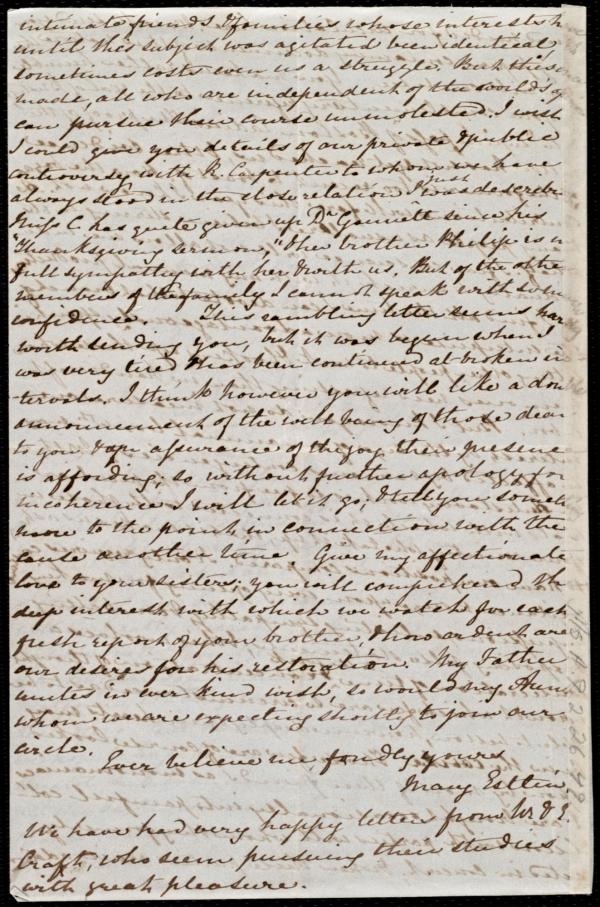 intimate friends & families whose interests h
until this subject was agitated been identical,
sometimes costs even us a struggle. But this
made, all who are independent of the world's
can pursue their course unmolested. I wish
I could give you details of our private & public
controversy with R. Carpenter to whom we have
just
always stood in the close relation I was describ
Miss C has quite given up Dr Gannett since his
"Thanksgiving sermon," & her brother Philip is in
full sympathy with her & with us. But of the othe
members of the family I cannot speak with som
confidence. This rambling letter seems har
worth sending you, but it was begun when I
was very tired & has been continued at broken in
tervals. I think however you will like a dou
announcement of the well being of those dear
to you & an assurance of the joy their presence
is affording; so without further apology for
incoherence I will let it go, & tell you someth
more to the point in connection with the
cause another time. Give my affectionate
love to your sisters; you will comprehend th
deep interest with which we watch for each
fresh report of your brother, & how ardent are
our desires for his restoration. My Father
unites in ever kind wish, so would my Aunt
whom we are expecting shortly to join our
circle.
Ever believe me fondly yours
Mary Estlin.
We have had very happy letter from W. & E.
Craft, who seem pursuing their studies
with great pleasure.